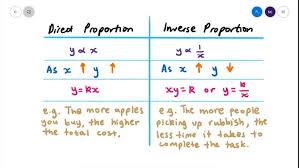 Direct Proportion
y ∝ x
As x ↑ y ↑
y = kx
e.g. The more apples
you buy, the higher
the total cost.
Inverse Proportion
y ∝ 1/x
As x ↑ y ↓
xy = k or y = k/x
e.g. The more people
picking up rubbish, the
less time it takes to
complete the task.